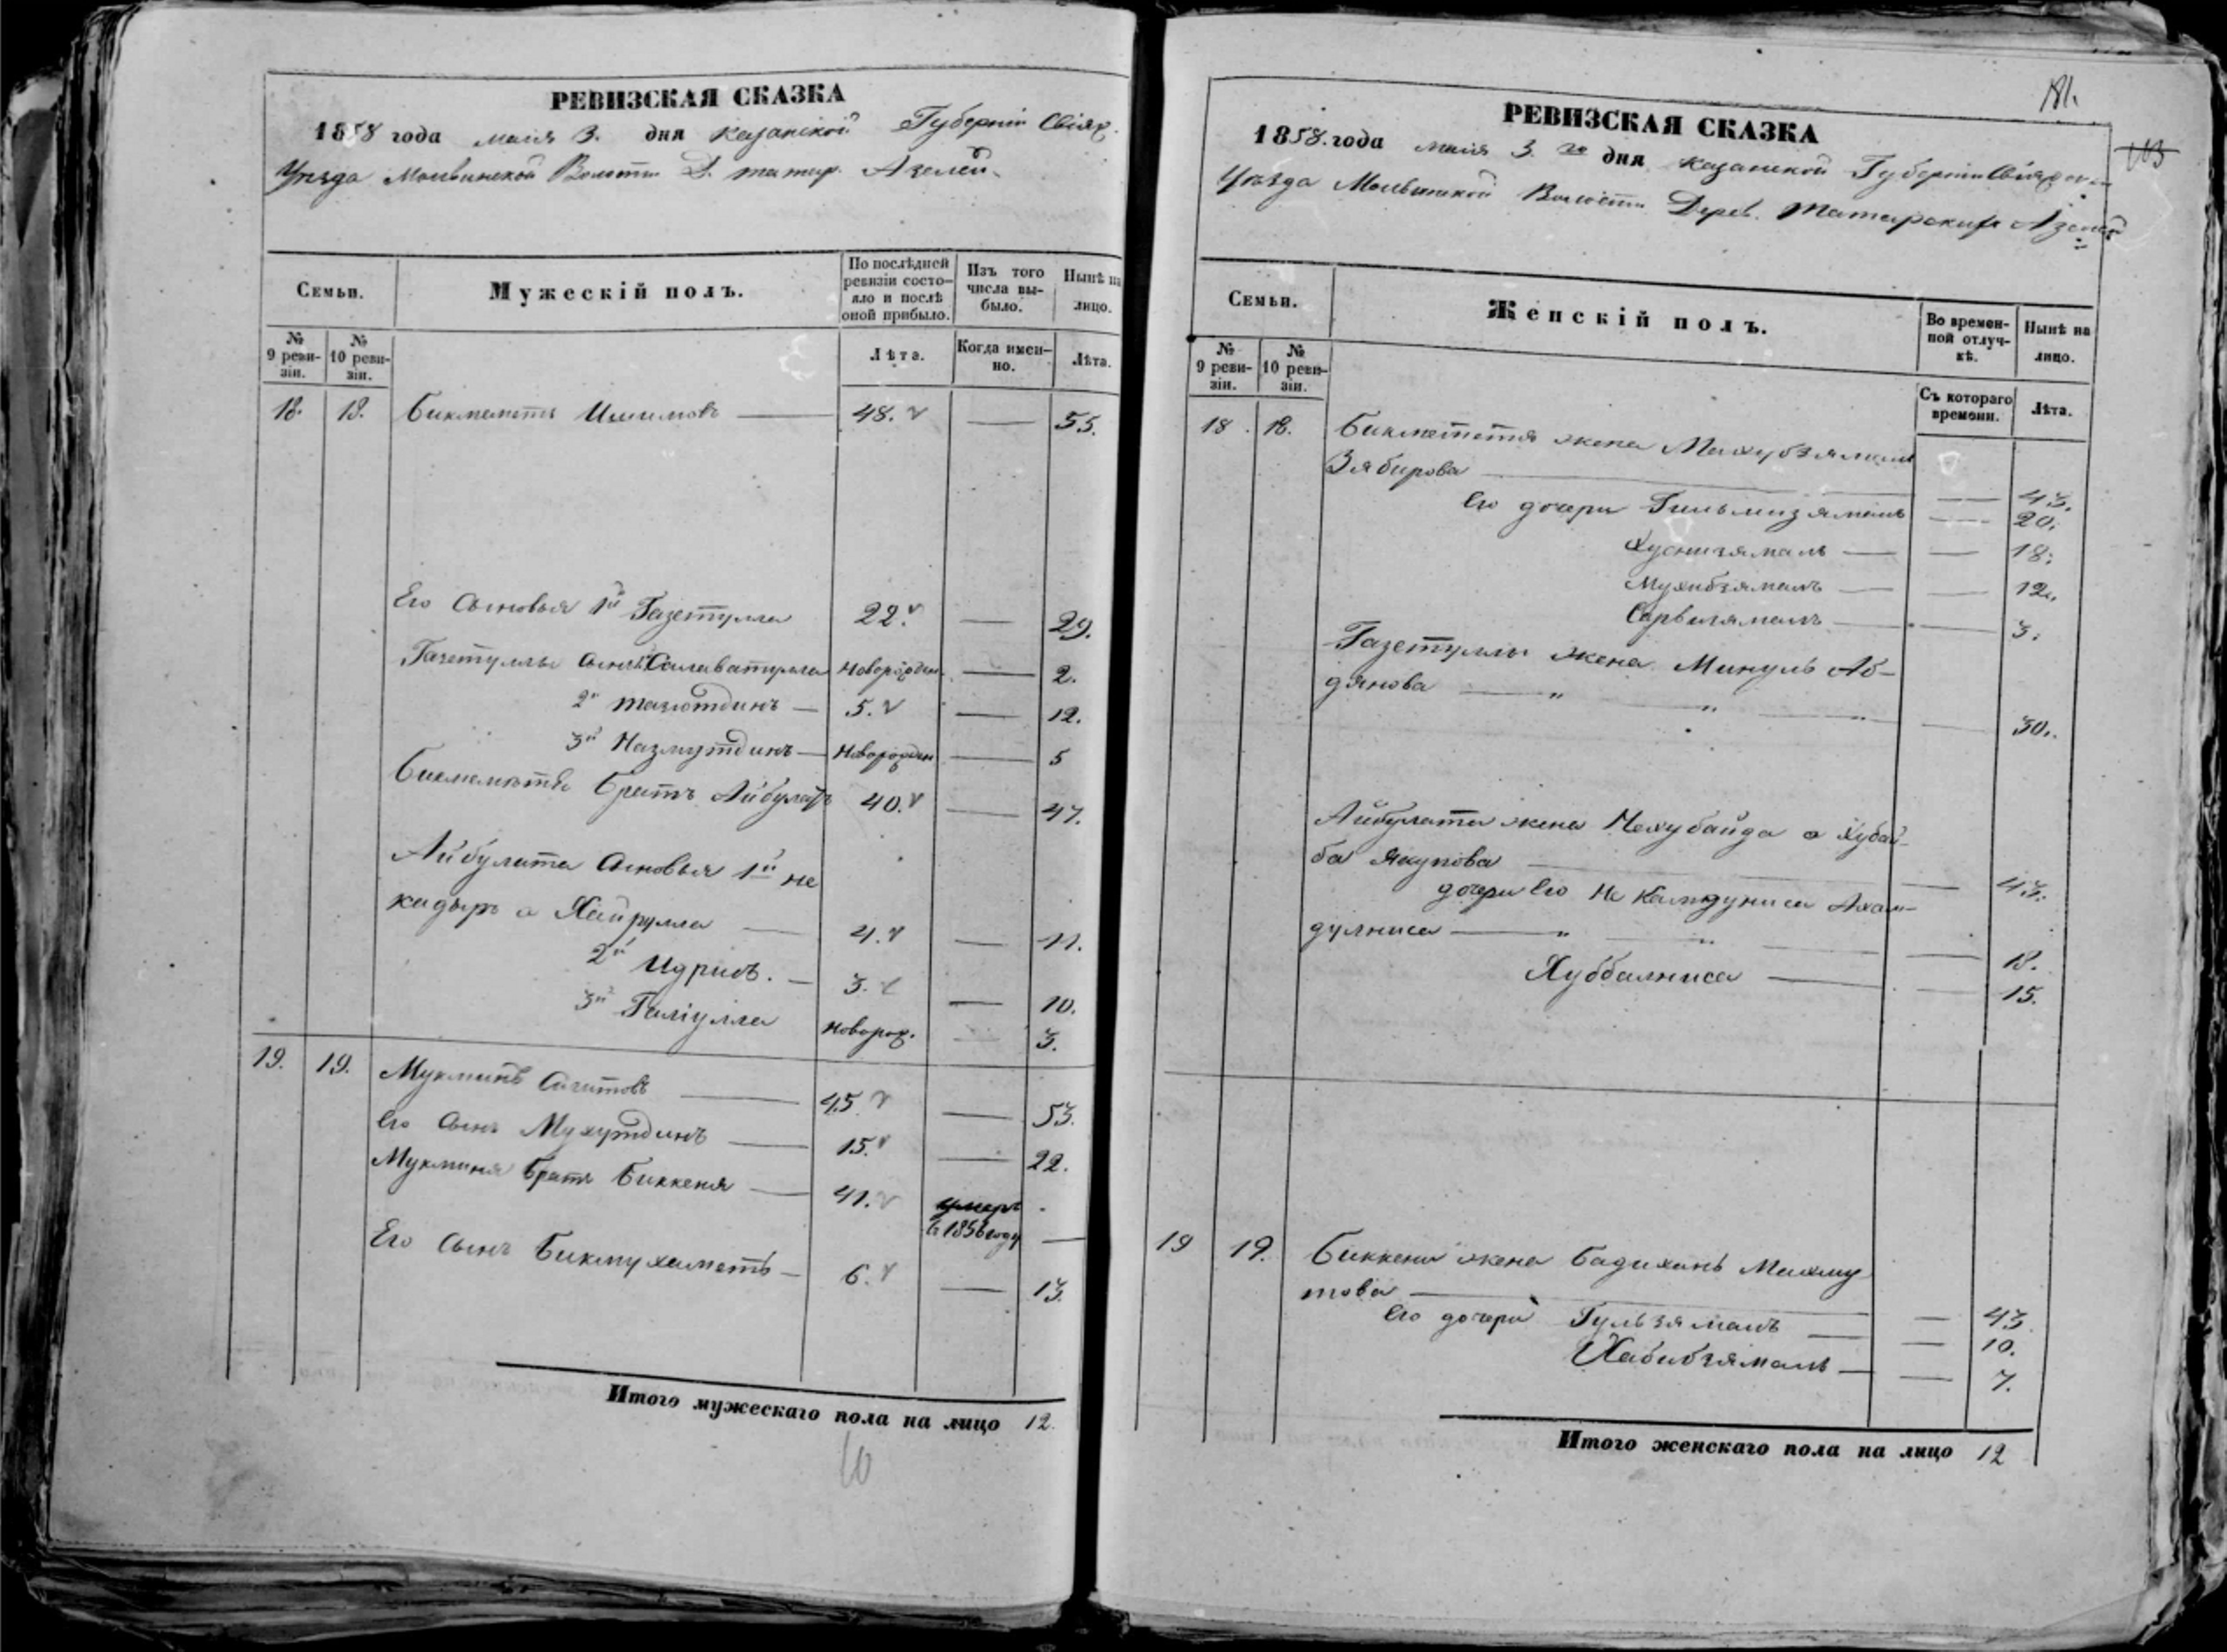 РЕВИЗСКАЯ СКАЗКА
1858 года маія 3. дня Казанской Губерніи Свіяж.
Уѣзда Молвинской Волости Д. татар. Азелей
Семьи.
Мужескій полъ.
По послѣдней ревизіи состояло и послѣ оной прибыло.
Изъ того числа выбыло.
Нынѣ на лицо.
№ 9 ревизіи.
№ 10 ревизіи.
Лѣта.
Когда именно.
Лѣта.
18. 18. Бикмеметъ Ишимовъ 48. — 55.
Его Сыновья 1й Газетулла 22. — 29.
Газетуллы сынъ Салаватулла Новорожден. — 2.
2й Тазютдинъ — 5. — 12.
3й Назмутдинъ — Новорожден — 5
Братъ Айбулатъ 40. — 47.
Айбулата Сыновья 1й не
кадыръ а Хайрулла — 4. — 11.
2й Идрисъ. — 3. — 10.
3й Галіулла новорож. — 3.
19. 19. Мукминъ Сагитовъ — 45 — 53.
Его Сынъ Мухутдинъ — 15. — 22.
Мукминя братъ Биккеня — 41. умеръ
в 1856 году —
Его Сынъ Бикмухаметъ — 6. — 13.
Итого мужескаго пола на лицо 12.
10
181.
113
РЕВИЗСКАЯ СКАЗКА
1858. года маія 3. го дня Казанской Губерніи
Уѣзда Молвинской Волости Дерев. Татарскихъ Азелей
Семьи.
Женскій полъ.
Во временной отлучкѣ.
Нынѣ на лицо.
№ 9 ревизіи.
№ 10 ревизіи.
Съ котораго времени.
Лѣта.
18. 18. жена
Зябирова — — 43.
Его дочери — 20.
Хуснизямаль — — 18.
Мухибзямаль — — 12.
— — 3.
Газетуллы жена Минуль Аб-
дянова — " — " — " — 30.
Айбулата жена Нехубайда а Хубай-
ба Якупова — — 43.
дочери Его не
дулниса — " — " — — 18.
Хуббалниса — — 15.
19 19. Биккени жена Бадихань Махму
това — — 43.
Его дочери Гульзямаль — — 10.
Хабибзямаль — — 7.
Итого женскаго пола на лицо 12